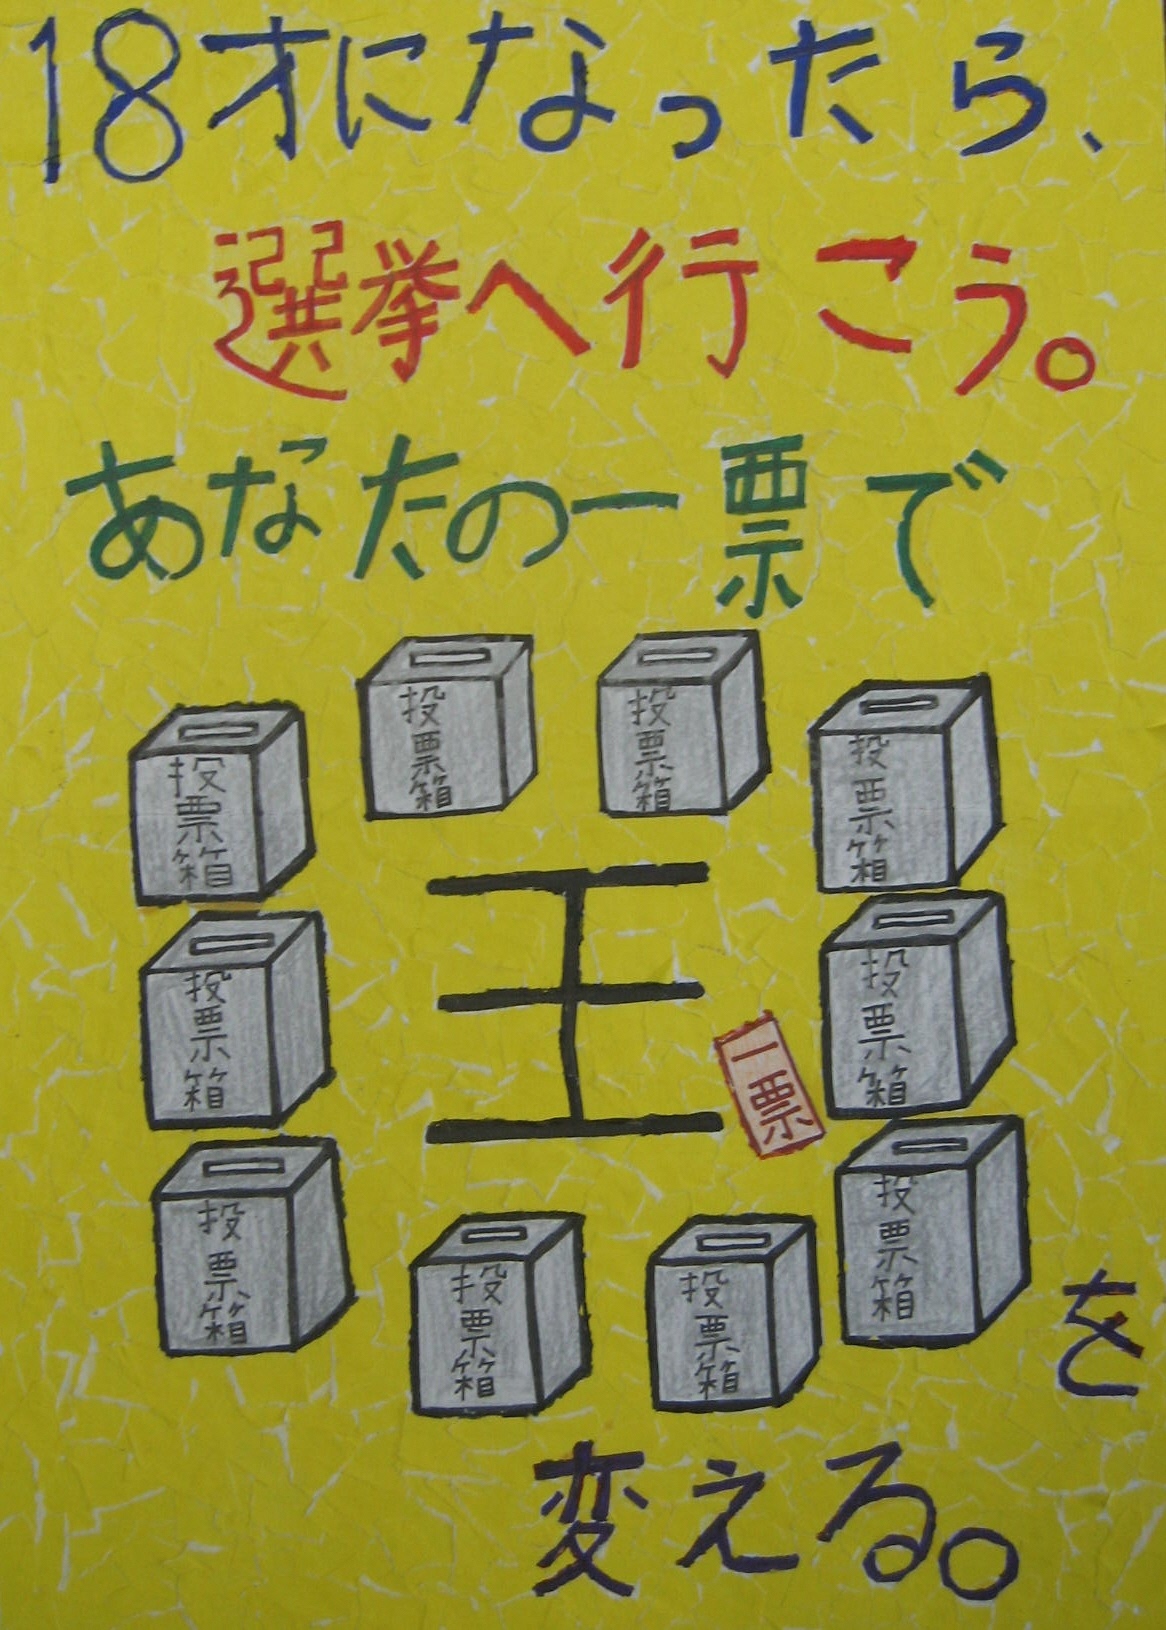 18才になったら、
選挙へ行こう。
あなたの一票で
投票箱
投票箱
投票箱
投票箱
王
投票箱
投票箱
一票
投票箱
投票箱
投票箱
投票箱
を
変える。